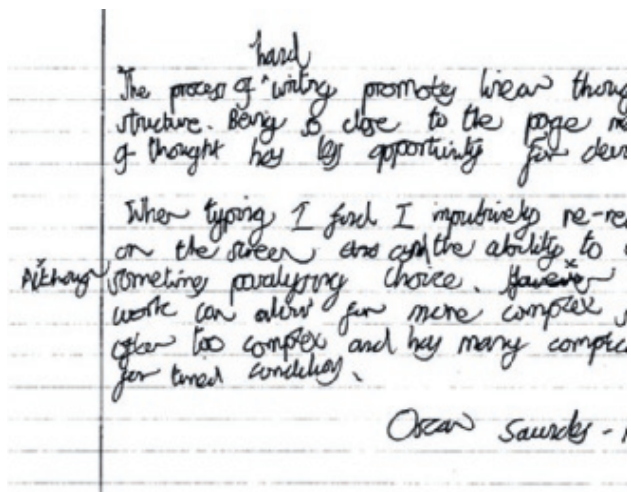 hard
The process of ^ writing promotes linear thoug
structure. Being so close to the page m
of thought has less opportunity for dev
When typing I find I impulsively re-re
on the screen and the ability to
Although sometimes paralysing choice. However
work can allow for more complex
often too complex and has many complic
for timed conditions.
Oscar Saunders -